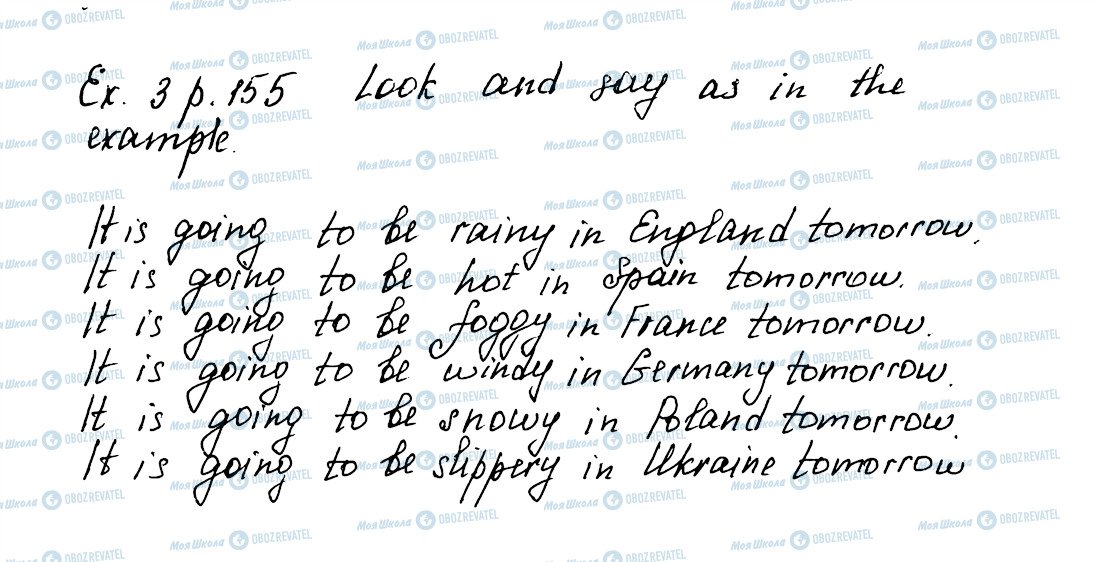 Ex. 3 p. 155 Look and say as in the
example.
It is going to be rainy in England tomorrow.
It is going to be hot in Spain tomorrow.
It is going to be foggy in France tomorrow.
It is going to be windy in Germany tomorrow.
It is going to be snowy in Poland tomorrow.
It is going to be slippery in Ukraine tomorrow